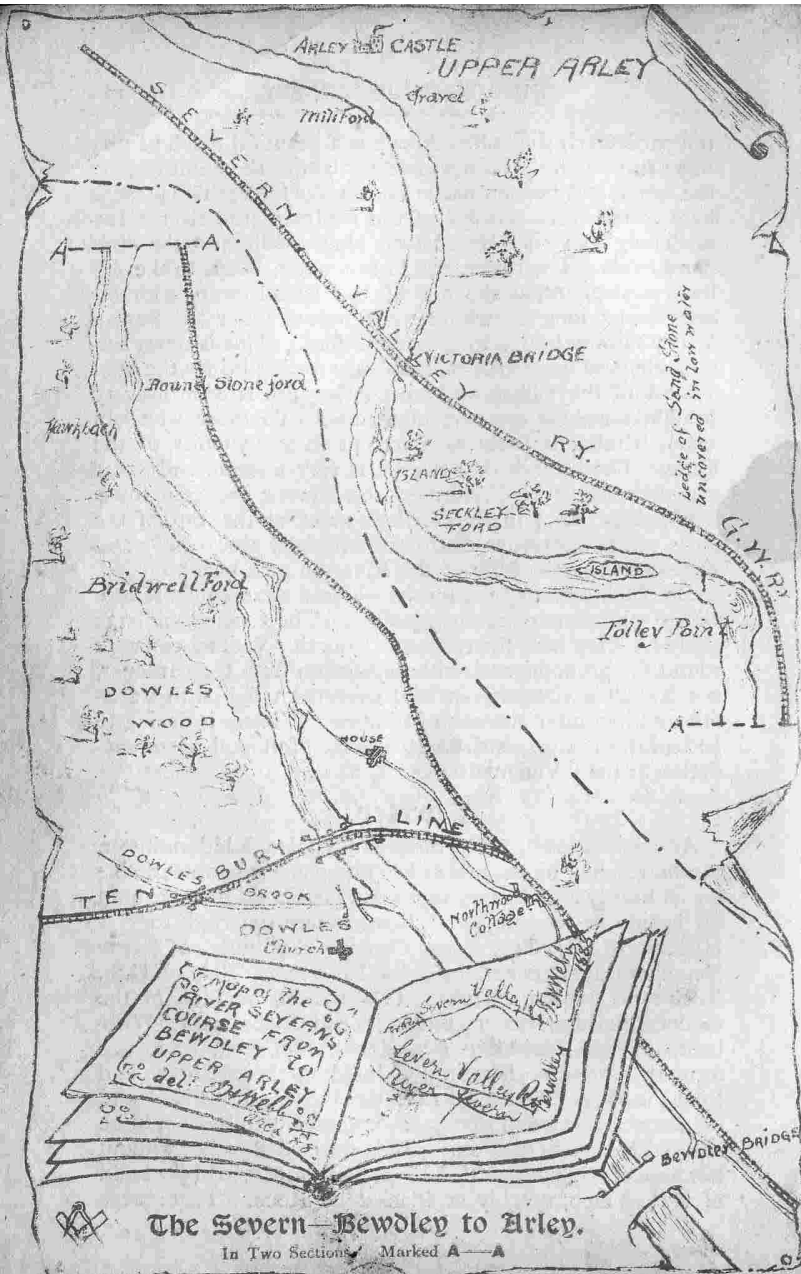 ARLEY CASTLE
UPPER ARLEY
Gravel
Millford
SEVERN VALLEY RY
A A
VICTORIA BRIDGE
Round Stone ford
Ledge of Sand Stone
uncovered in low water
ISLAND
SECKLEY
FORD
G.W.RY
ISLAND
Bridwell Ford
Folley Point
DOWLES
WOOD
A A
HOUSE
TENBURY LINE
DOWLES
BROOK
Northwood
Cottage
DOWLES
Church
Map of the
RIVER SEVERNS
COURSE FROM
BEWDLEY TO
UPPER ARLEY
del:
Severn Valley
Severn Valley Ry
River Severn
Bewdley
BEWDLEY BRIDGE
The Severn—Bewdley to Arley.
In Two Sections. Marked A——A